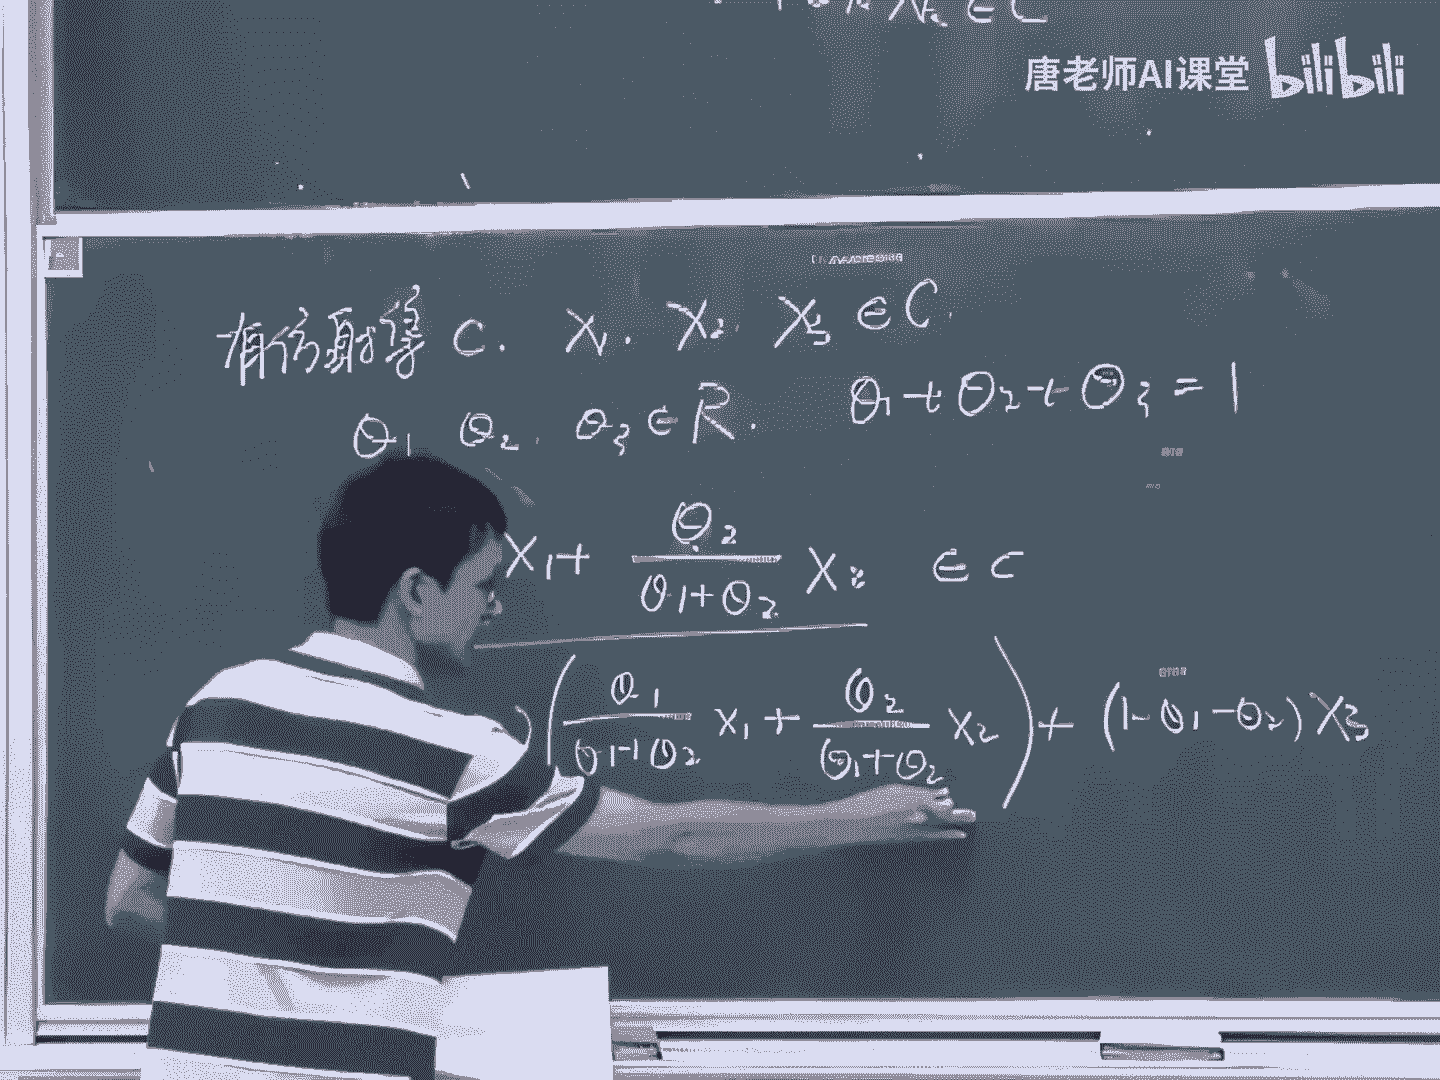 ∈ C
唐老师AI课堂 bilibili
有仿射集 C. X₁. X₂. X₃ ∈ C.
θ₁ θ₂. θ₃ ∈ R. θ₁ + θ₂ + θ₃ = 1
X₁ + θ₂/(θ₁+θ₂) X₂ ∈ C
(θ₁/(θ₁+θ₂) X₁ + θ₂/(θ₁+θ₂) X₂) + (1-θ₁-θ₂) X₃